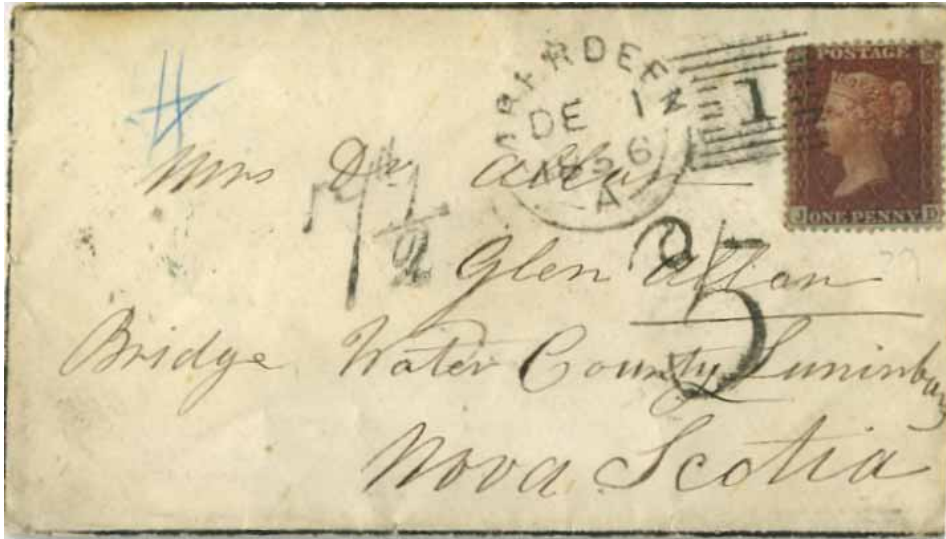 ABERDEEN
DE 12
1856
A
1
POSTAGE
J ONE PENNY D
Mrs Dr Allan
7 1/2
Glen Allan
5
Bridge Water County Luninburg
Nova Scotia